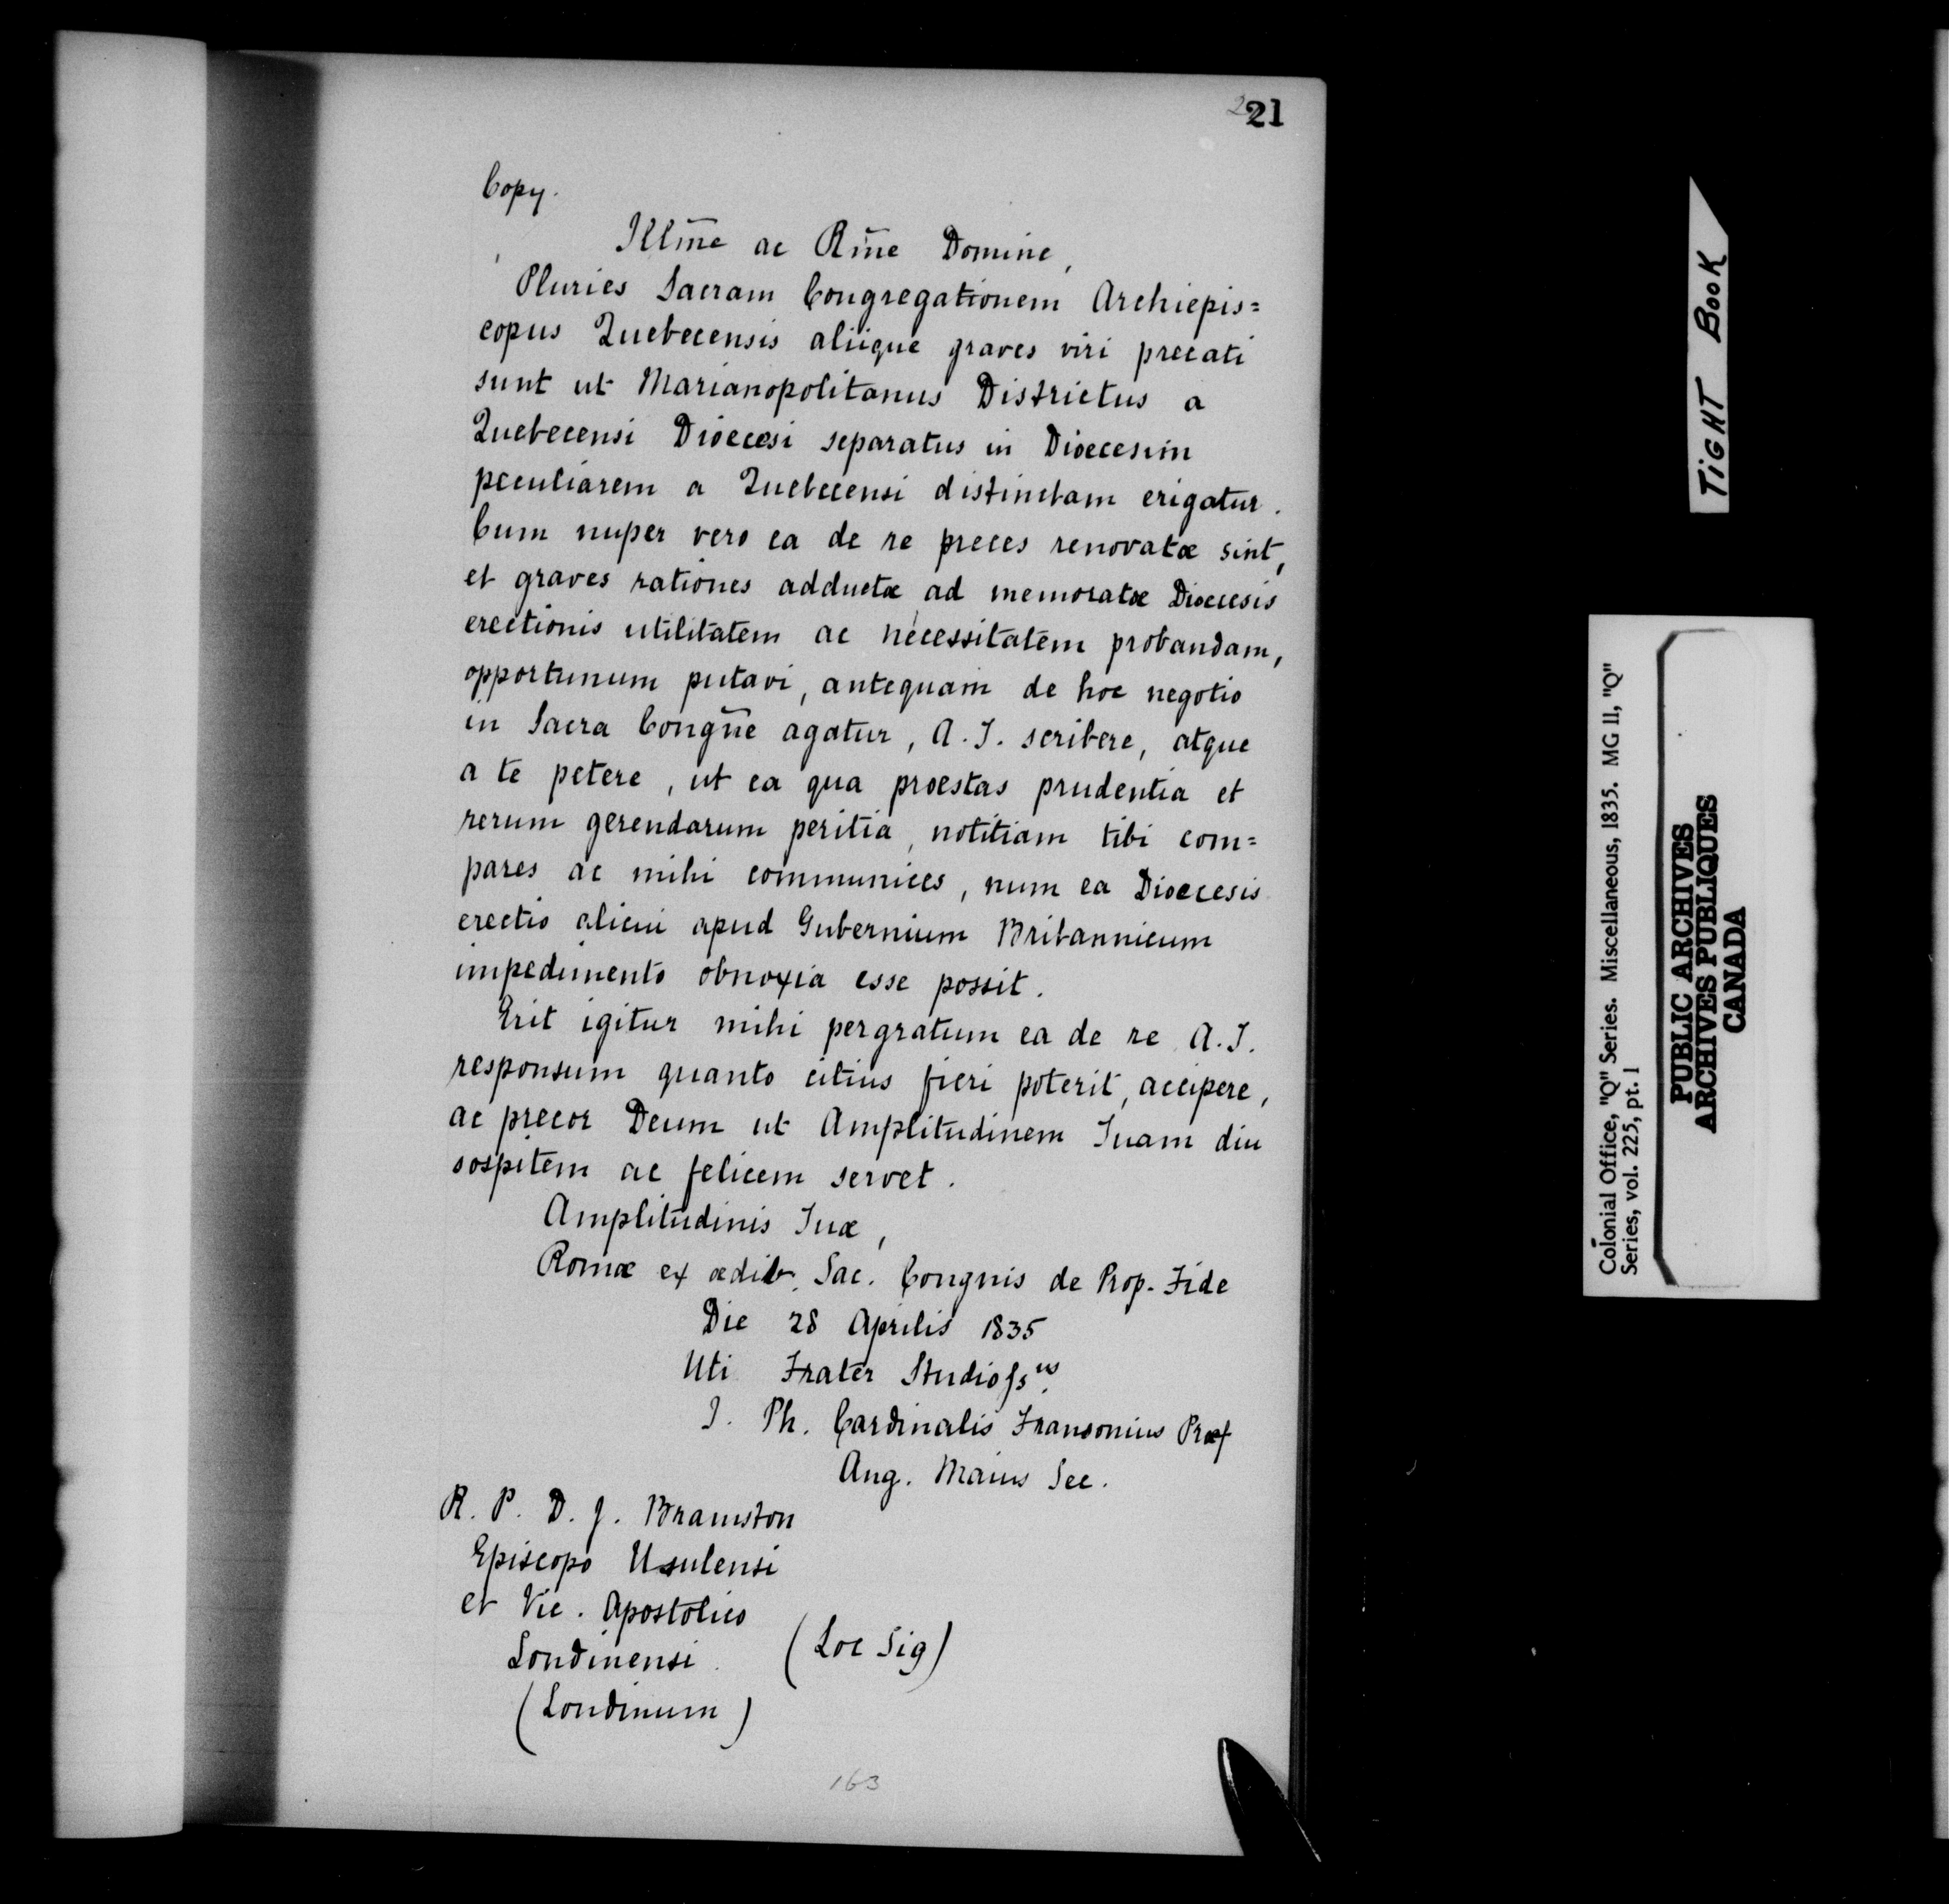 21
Copy.
Illm̄e ac Rm̄e Domine,
Pluries Sacram Congregationem Archiepis=
copus Quebecensis aliique graves viri precati
sunt ut Marianopolitanus Districtus a
Quebecensi Dioecesi separatus in Dioecesim
peculiarem a Quebecensi distinctam erigatur.
Cum nuper vero ea de re preces renovatæ sint,
et graves rationes adductæ ad memoratæ Dioecesis
erectionis utilitatem ac necessitatem probandam,
opportunum putavi, antequam de hoc negotio
in Sacra Congn̄e agatur, A. T. scribere, atque
a te petere, ut ea qua præstas prudentia et
rerum gerendarum peritia, notitiam tibi com=
pares ac mihi communices, num ea Dioecesis
erectio alicui apud Gubernium Britannicum
impedimento obnoxia esse possit.
Erit igitur mihi pergratum ea de re A. T.
responsum quanto citius fieri poterit, accipere,
ac precor Deum ut Amplitudinem Tuam diu
sospitem ac felicem servet.
Amplitudinis Tuæ,
Romæ ex ædib. Sac. Congnis de Prop. Fide
Die 28 Aprilis 1835
Uti Frater Studioss.us
J. Ph. Cardinalis Fransonius Præf
Ang. Maius Sec.
R. P. D. J. Bramston
Episcopo Usulensi
et Vic. Apostolico
Londinensi.
(Loc Sig)
(Londinum)
163
TIGHT BOOK
Colonial Office, "Q" Series. Miscellaneous, 1835. MG 11, "Q"
Series, vol. 225, pt. 1
PUBLIC ARCHIVES
ARCHIVES PUBLIQUES
CANADA